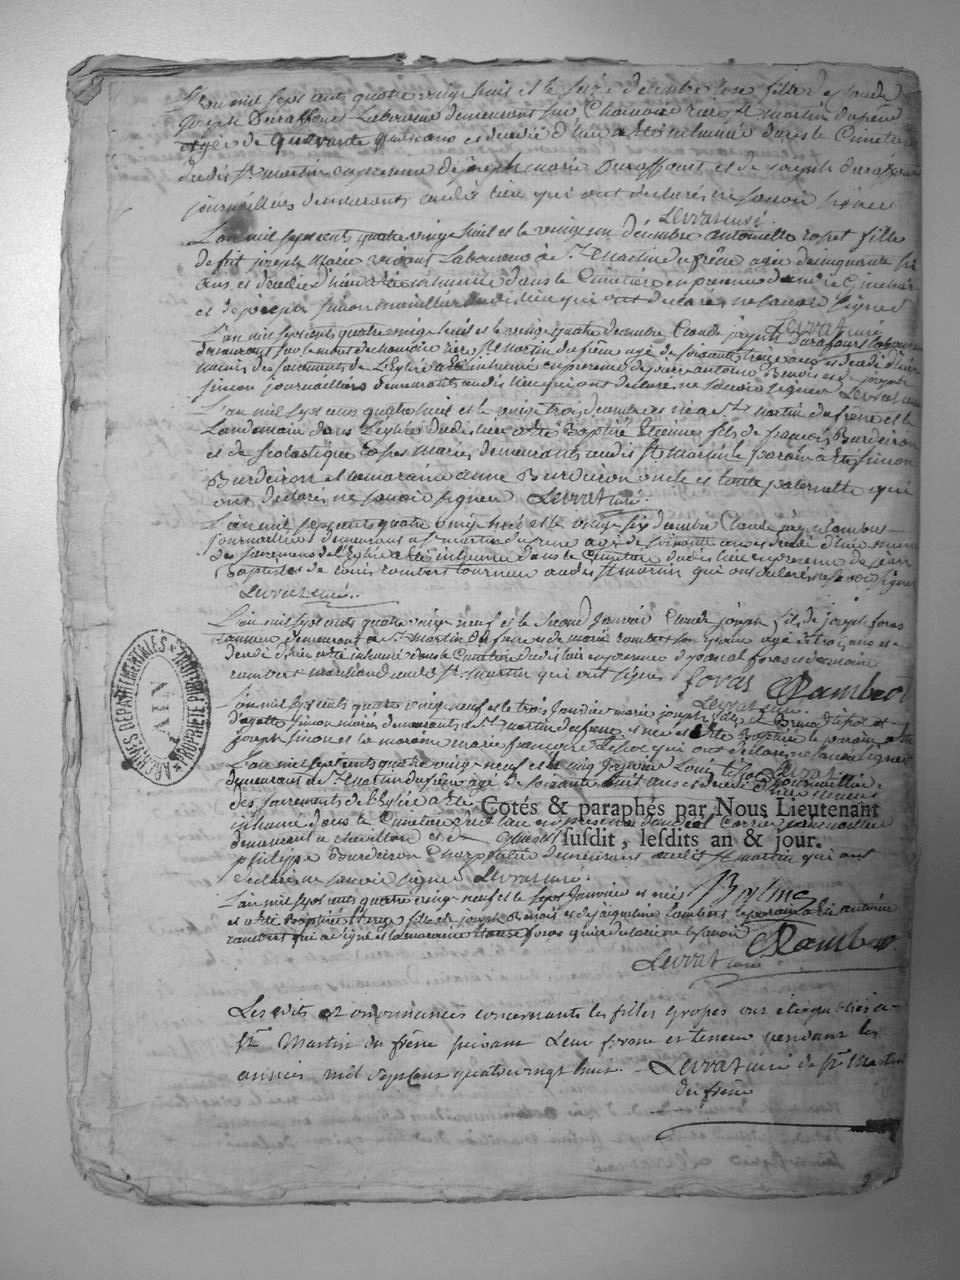 L'an mil sept cent quatre vingt huit et le seize décembre rose fille de Claude
Joseph Duraffourt Laboureur demeurant sur Chamoise rière St martin du frene
agée de Quarante Quatre ans et decedée d'hier a été inhumée dans le Cimetiere
dudit St martin en presence de joseph marie Duraffourt et de joseph duraffourt
journailliers demeurants audit lieu qui ont declarés ne savoir signer
Levrat curé.
L'an mil sept cents quatre vingt huit et le vingt un décembre antoinette ropet fille
de fut joseph Marie vivant Laboureur à St Martin du frêne agée de cinquante six
ans et decedée d'hier a été inhumée dans le Cimetière en presence de
et de joseph simon journailliers audit lieu qui ont declarés ne savoir signer
Levrat curé
L'an mil sept cents quatre vingt huit et le vingt quatre decembre Claude joseph Duraffourt laboureur
demeurant sur le mont de chamoise rière St Martin du frêne agé de soixante treize ans et decedé d'hier
munis des sacrements de L'Eglise a été inhumé en presence de pierre antoine Benoit et de joseph
simon journailliers demeurants audit lieu qui ont declarés ne savoir signer Levrat curé
L'an mil sept cents quatre huit et le vingt trois decembre est né a St martin du frene et le
Landemain dans L'eglise dudit lieu a été Baptisé Etienne fils de françois Burdeiron
et de scolastique mariés demeurants audit St Martin le parain a été simon
Burdeiron et la maraine anne Burdeiron oncle et tante paternelle qui
ont declarés ne savoir signer Levrat curé.
L'an mil sept cents quatre vingt huit et le vingt six decembre Claude
journaillier demeurant a St martin du frene agé de soixante ans et decedé d'hier muni
des sacremens de l'Eglise a été inhumé dans le Cimetière dudit lieu en presence de jean
Baptiste et de Louis tourneur audit St martin qui ont declarés ne savoir signer
Levrat curé.
L'an mil sept cents quatre vingt neuf et le second Janvier Claude joseph fils de joseph foras
tanneur demeurant à St martin du frene et de marie rambert son epouse agé de trois ans et
decedé d'hier a été inhumé dans le Cimetière dudit lieu en presence de pascal foras et de
rambert marchand audit St martin qui ont signés foras Rambert
Levrat curé
L'an mil sept cents quatre vingt neuf et le trois Janvier marie joseph fils de
d'agathe simon mariés demeurants a St martin du frene est né et a été Baptisé le parain a été
joseph simon et la maraine marie françoise qui ont declarés ne savoir signer
Levrat
L'an mil sept cents quatre vingt neuf et le cinq Janvier Louis journaillier
demeurant à St Martin du frêne agé de soixante huit ans et decedé d'hier muni
des sacrements de l'Eglise a été
Cotés & paraphés par Nous Lieutenant
inhumé dans le Cimetière dudit lieu en presence de journaillier
demeurant a chevillard et de
susdit, lesdits an & jour.
philippe Bourdeiron Charpentier demeurant audit St martin qui ont
declarés ne savoir signer Levrat curé.
L'an mil sept cents quatre vingt neuf et le sept Janvier est né
et a été Baptisé fille de joseph Benoit et de jaqueline lambert le parain a été antoine
rambert qui a signé et la maraine foras qui a declaré ne le savoir Rambert
Levrat curé
Les edits et ordonnances concernants les filles grosses ont étés publiés a
St Martin du frêne suivant Leur forme et teneur pendant les
années mil sept cent quatre vingt huit. Levrat curé de St Martin
du frêne
ARCHIVES DÉPARTEMENTALES
AIN
PROPRIÉTÉ PUBLIQUE